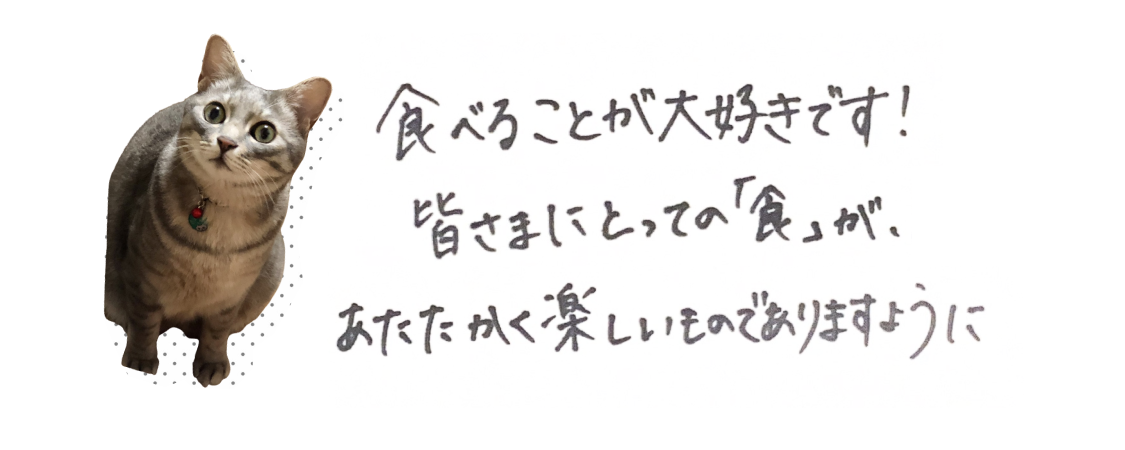 食べることが大好きです!
皆さまにとっての「食」が、
あたたかく楽しいものでありますように